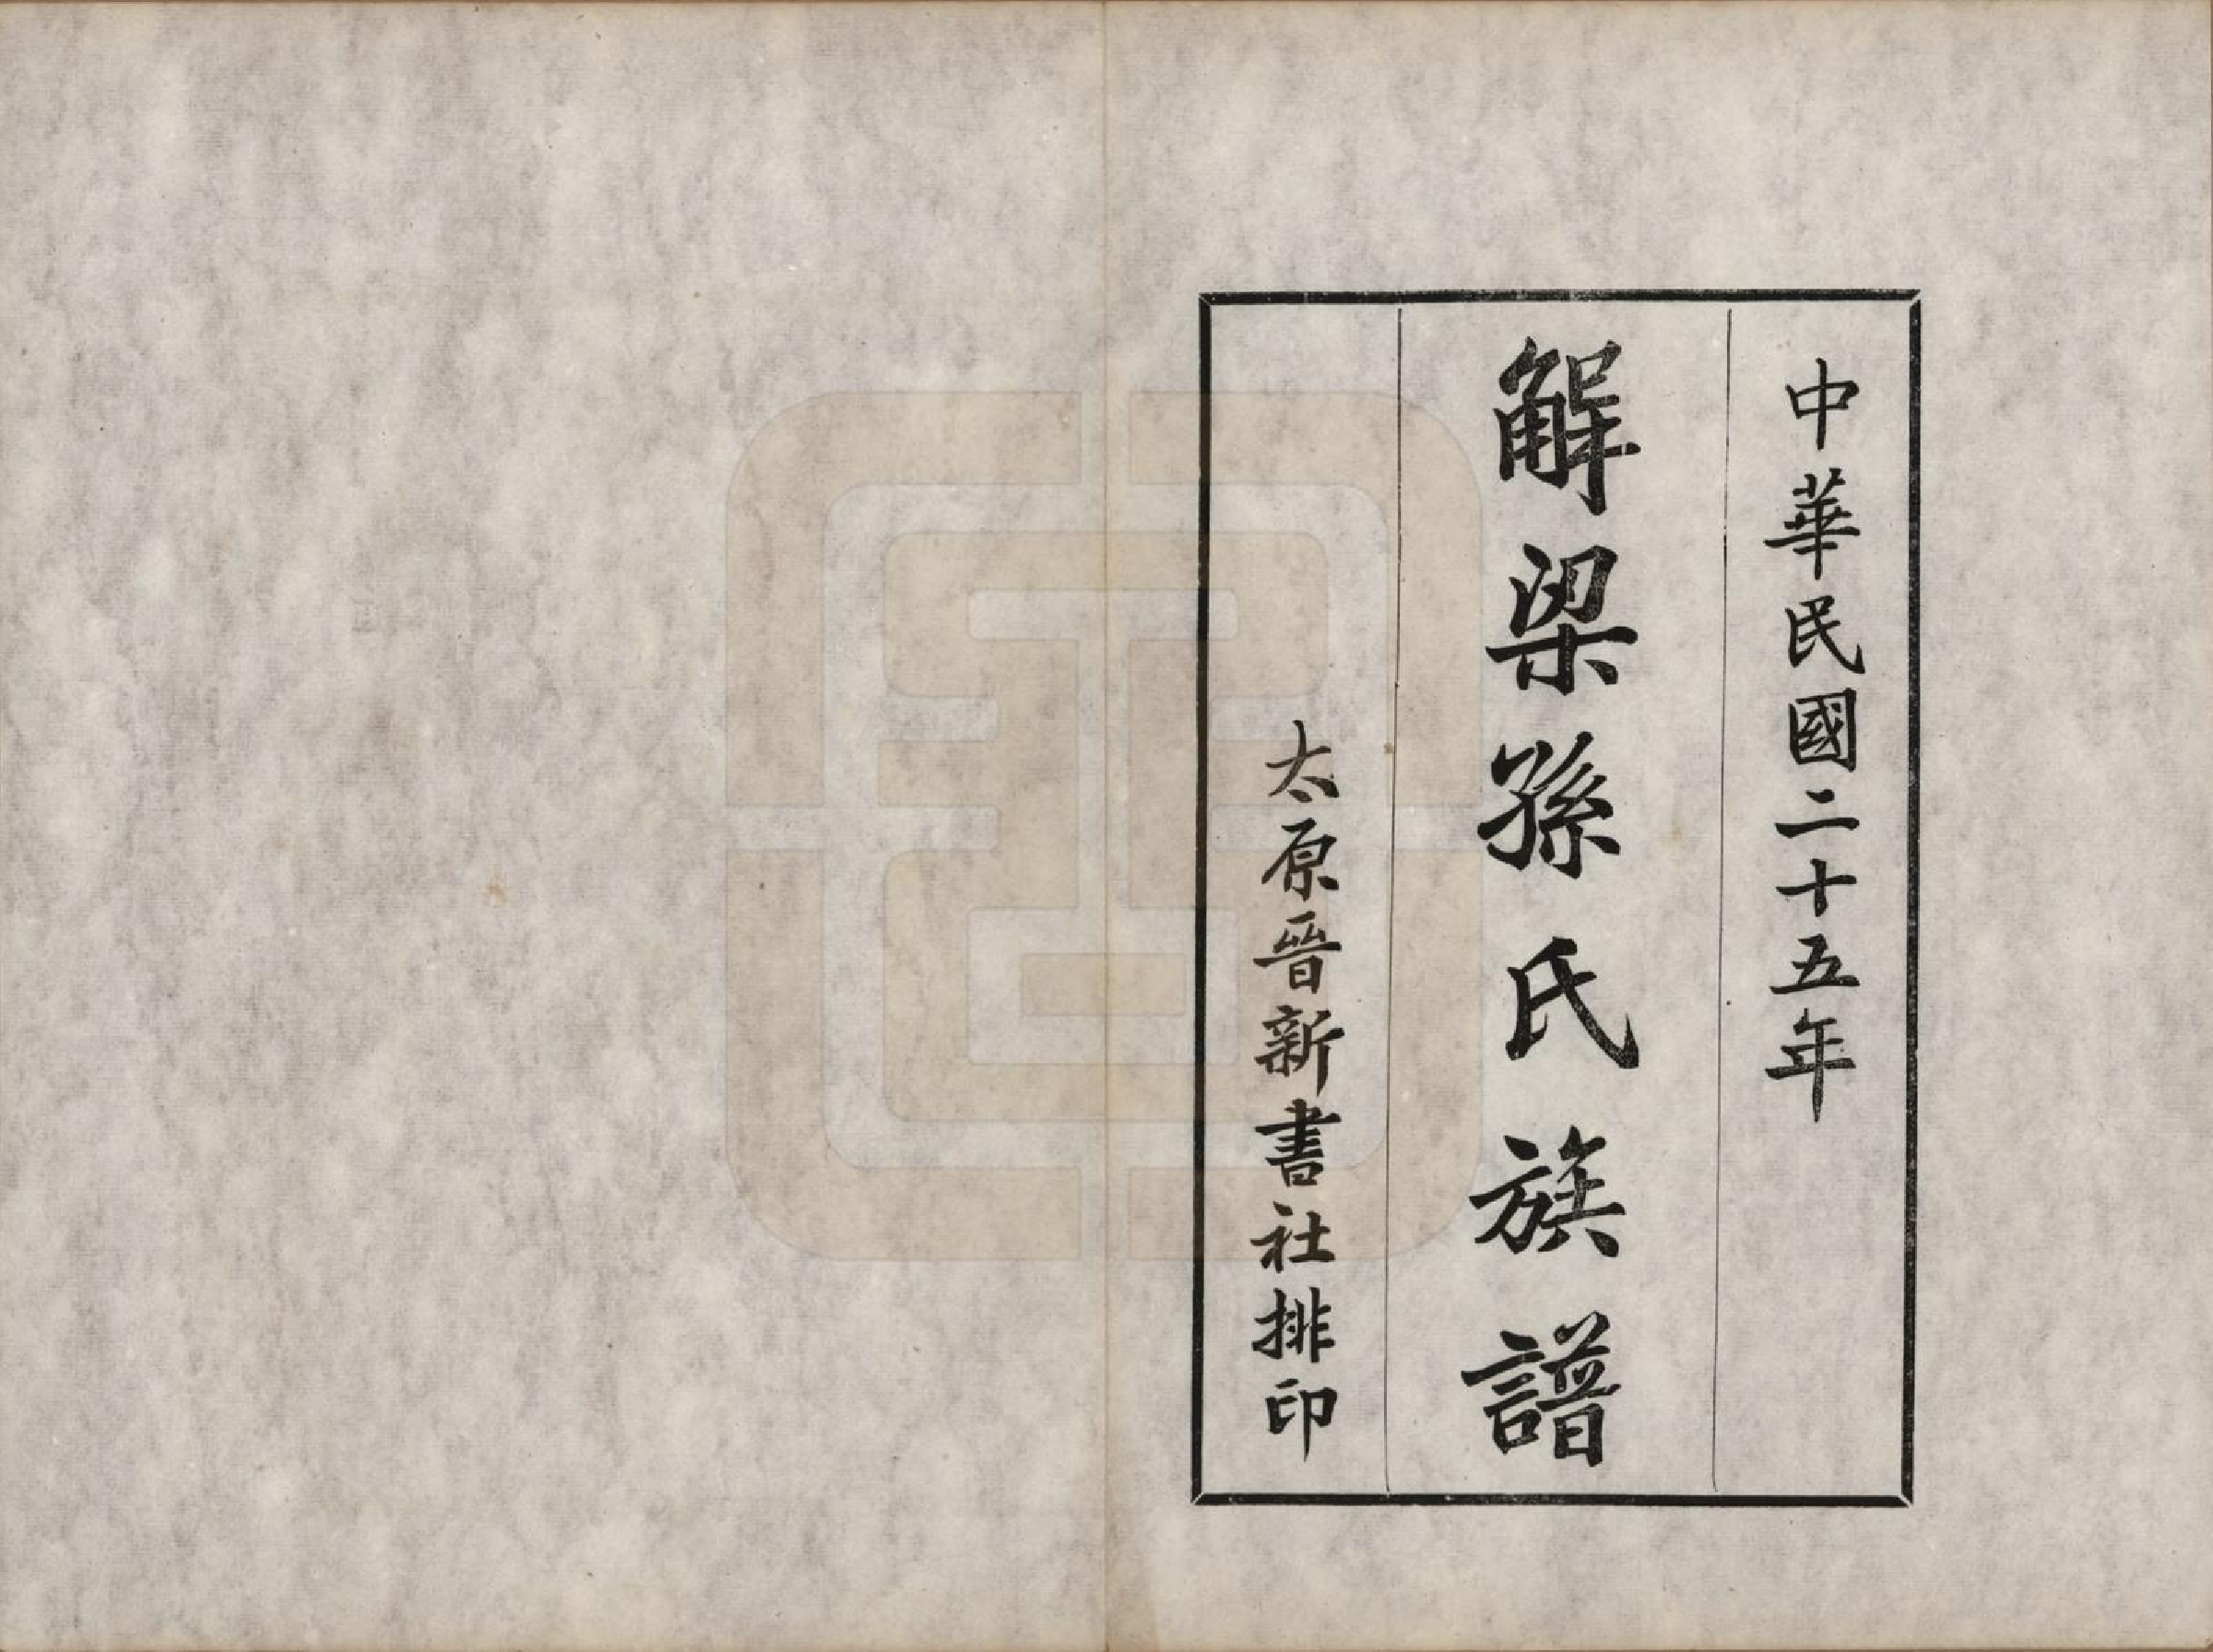 中華民國二十五年
解梁孫氏族譜
太原晉新書社排印